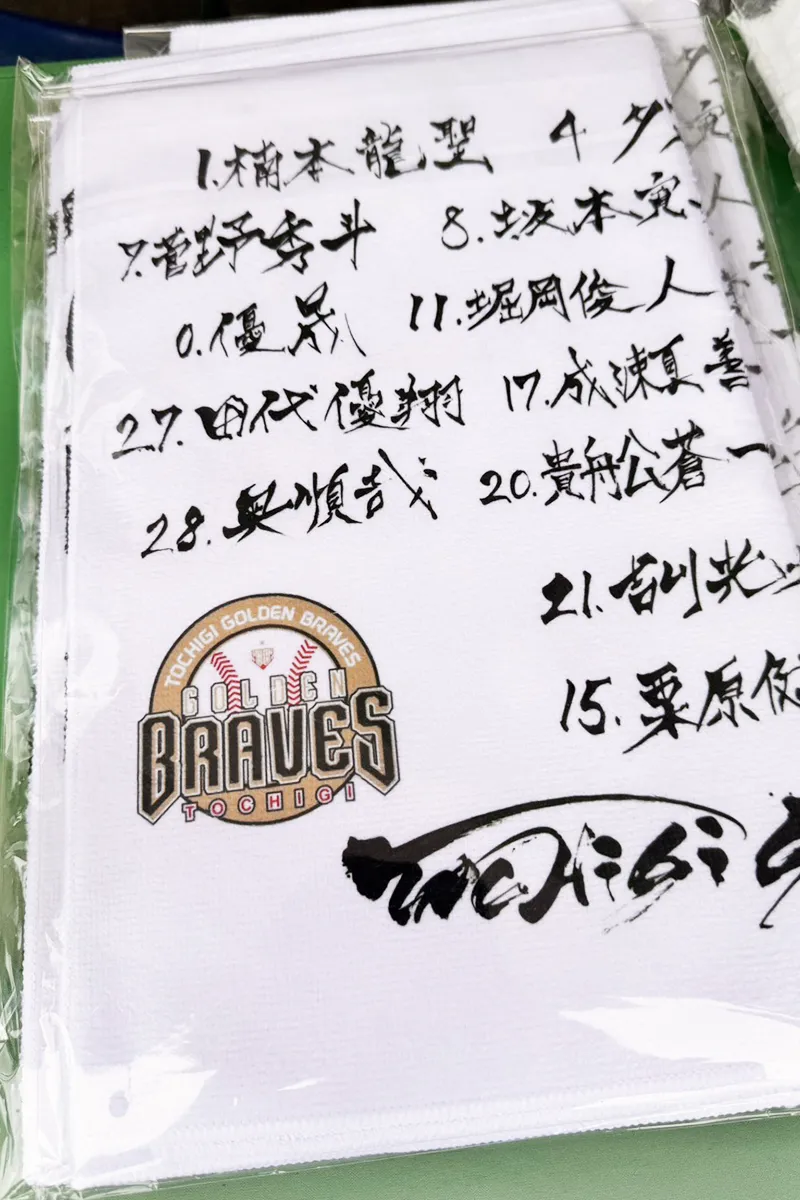 1.楠本龍聖 4 タ
7.菅野秀斗 8.坂本寅
0.優晟 11.堀岡俊人
27.田代優翔 17.成瀬善
28.奥順哉 20.貴舟公蒼一
21.吉川光
15.栗原健
TOCHIGI GOLDEN BRAVES
GOLDEN
BRAVES
TOCHIGI